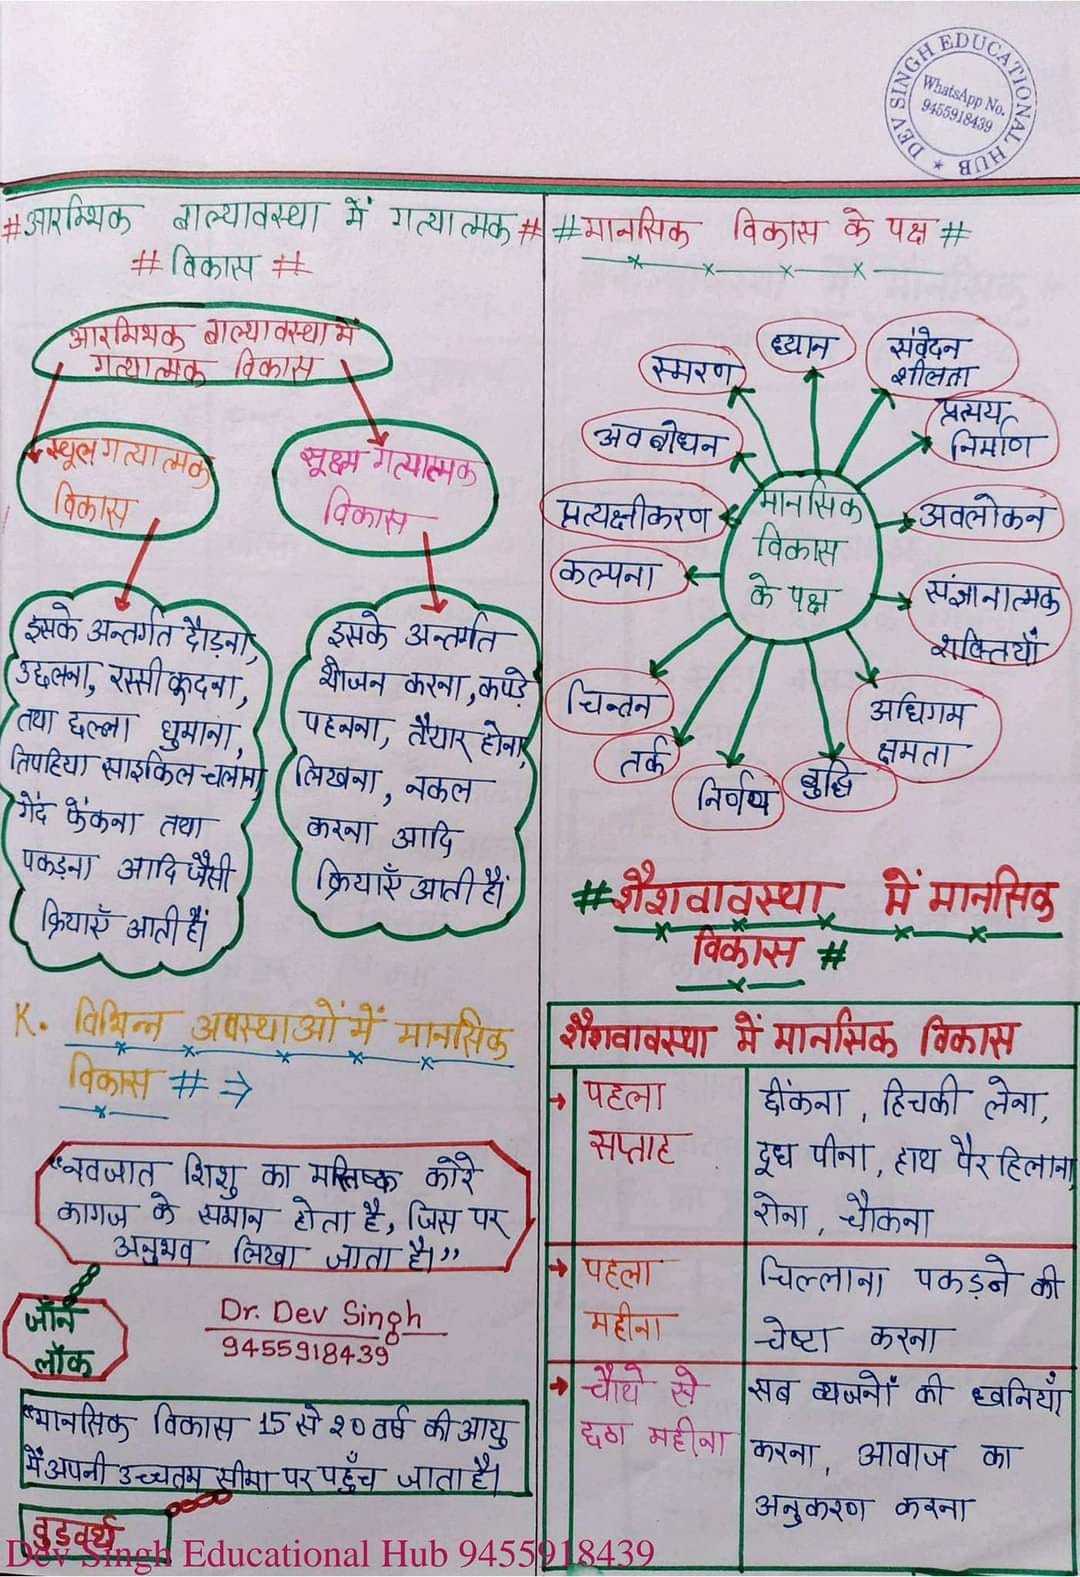 DEV SINGH EDUCATIONAL HUB
WhatsApp No.
9455918439
#आरम्भिक बाल्यावस्था में गत्यात्मक#
# विकास #
आरम्भिक बाल्यावस्था में
गत्यात्मक विकास
स्थूल गत्यात्मक
विकास
सूक्ष्म गत्यात्मक
विकास
इसके अन्तर्गत दौड़ना,
उछलना, रस्सी कूदना,
तथा छल्ला घुमाना,
तिपहिया साइकिल चलाना
गेंद फेंकना तथा
पकड़ना आदि जैसी
क्रियाएँ आती हैं।
इसके अन्तर्गत
भोजन करना, कपड़े
पहनना, तैयार होना,
लिखना, नकल
करना आदि
क्रियाएँ आती हैं।
K. विभिन्न अवस्थाओं में मानसिक
विकास # ⇒
"नवजात शिशु का मस्तिष्क कोरे
कागज के समान होता है, जिस पर
अनुभव लिखा जाता है।"
जॉन
लॉक
Dr. Dev Singh
9455918439
"मानसिक विकास 15 से २० वर्ष की आयु
में अपनी उच्चतम सीमा पर पहुँच जाता है।
वुडवर्थ
#मानसिक विकास के पक्ष #
स्मरण
ध्यान
संवेदन
शीलता
प्रत्यय
निर्माण
अवबोधन
प्रत्यक्षीकरण
मानसिक
विकास
के पक्ष
अवलोकन
कल्पना
संज्ञानात्मक
शक्तियाँ
चिन्तन
अधिगम
क्षमता
तर्क
निर्णय
बुद्धि
#शैशवावस्था में मानसिक
विकास #
शैशवावस्था में मानसिक विकास
→ पहला
सप्ताह
छींकना, हिचकी लेना,
दूध पीना, हाथ पैर हिलाना,
रोना, चौकना
→ पहला
महीना
चिल्लाना पकड़ने की
चेष्टा करना
→ चौथे से
छठा महीना
सब व्यजनों की ध्वनियाँ
करना, आवाज का
अनुकरण करना
Dev Singh Educational Hub 9455918439